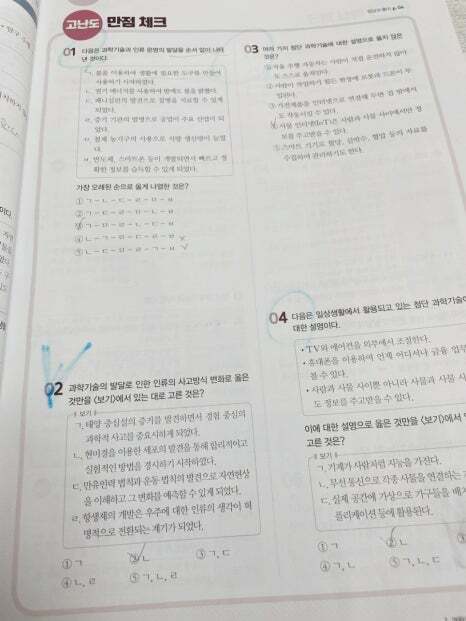 고난도 만점 체크
01 다음은 과학기술과 인류 문명의 발달을 순서 없이 나타
낸 것이다.
ㄱ. 불을 이용하여 생활에 필요한 도구를 만들어
사용하기 시작하였다.
ㄴ. 전기 에너지를 사용하여 밤에도 불을 밝혔다.
ㄷ. 페니실린의 발견으로 질병을 치료할 수 있게
되었다.
ㄹ. 증기 기관의 발명으로 공업이 주요 산업이 되
었다.
ㅁ. 철제 농기구의 사용으로 식량 생산량이 늘었
다.
ㅂ. 반도체, 스마트폰 등이 개발되면서 빠르고 정
확한 정보를 습득할 수 있게 되었다.
가장 오래된 순으로 옳게 나열한 것은?
02 과학기술의 발달로 인한 인류의 사고방식 변화로 옳은
것만을 〈보기〉에서 있는 대로 고른 것은?
보기
ㄱ. 태양 중심설의 증거를 발견하면서 경험 중심의
과학적 사고를 중요시하게 되었다.
ㄴ. 현미경을 이용한 세포의 발견을 통해 합리적이고
실험적인 방법을 경시하기 시작하였다.
ㄷ. 만유인력 법칙과 운동 법칙의 발견으로 자연현상
을 이해하고 그 변화를 예측할 수 있게 되었다.
ㄹ. 항생제의 개발은 우주에 대한 인류의 생각이 혁
명적으로 전환되는 계기가 되었다.
① ㄱ ② ㄴ ③ ㄱ, ㄷ
④ ㄴ, ㄹ ⑤ ㄱ, ㄴ, ㄹ
03 여러 가지 첨단 과학기술에 대한 설명으로 옳지 않은
것은?
자율 주행 자동차는 사람이 직접 운전하지 않아
도 스스로 움직인다.
사람이 작업하기 힘든 환경에 로봇과 드론이 투
입된다.
③ 가전제품을 인터넷으로 연결해 두면 집 밖에서
도 작동시킬 수 있다.
사물 인터넷(IoT)은 사람과 사물 사이에서만 정
보를 주고받을 수 있다.
⑤ 스마트 기기로 혈당, 심박수, 혈압 등의 자료를
수집하여 관리하기도 한다.
04 다음은 일상생활에서 활용되고 있는 첨단 과학기술에
대한 설명이다.
• TV와 에어컨을 외부에서 조절한다.
• 휴대폰을 이용하여 언제 어디서나 금융 업무
볼 수 있다.
• 사람과 사물 사이뿐 아니라 사물과 사물 사
도 정보를 주고받을 수 있다.
이에 대한 설명으로 옳은 것만을 〈보기〉에서
고른 것은?
보기
ㄱ. 기계가 사람처럼 지능을 가진다.
ㄴ. 무선 통신으로 각종 사물을 연결하는
ㄷ. 실제 공간에 가상으로 가구들을 배치
플리케이션 등에 활용된다.
① ㄱ ② ㄴ
④ ㄱ, ㄴ ⑤ ㄱ, ㄴ, ㄷ